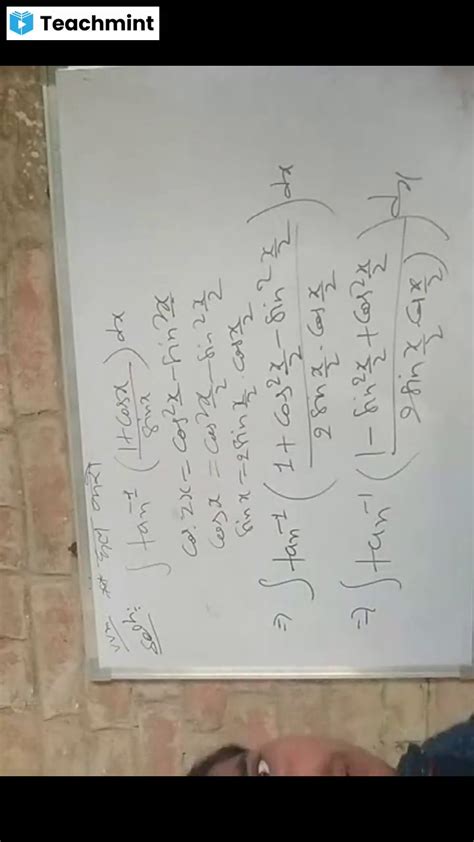 Teachmint
मान ज्ञात करो
Soln:
∫ tan⁻¹ ( (1+cosx) / sinx ) dx
cos2x = cos²x − sin²x
cosx = cos²x/2 − sin²x/2
sinx = 2sin x/2 . cos x/2
⇒ ∫ tan⁻¹ ( (1 + cos² x/2 − sin² x/2) / (2 sin x/2 . cos x/2) ) dx
⇒ ∫ tan⁻¹ ( (1 − sin² x/2 + cos² x/2) / (2 sin x/2 cos x/2) ) dx